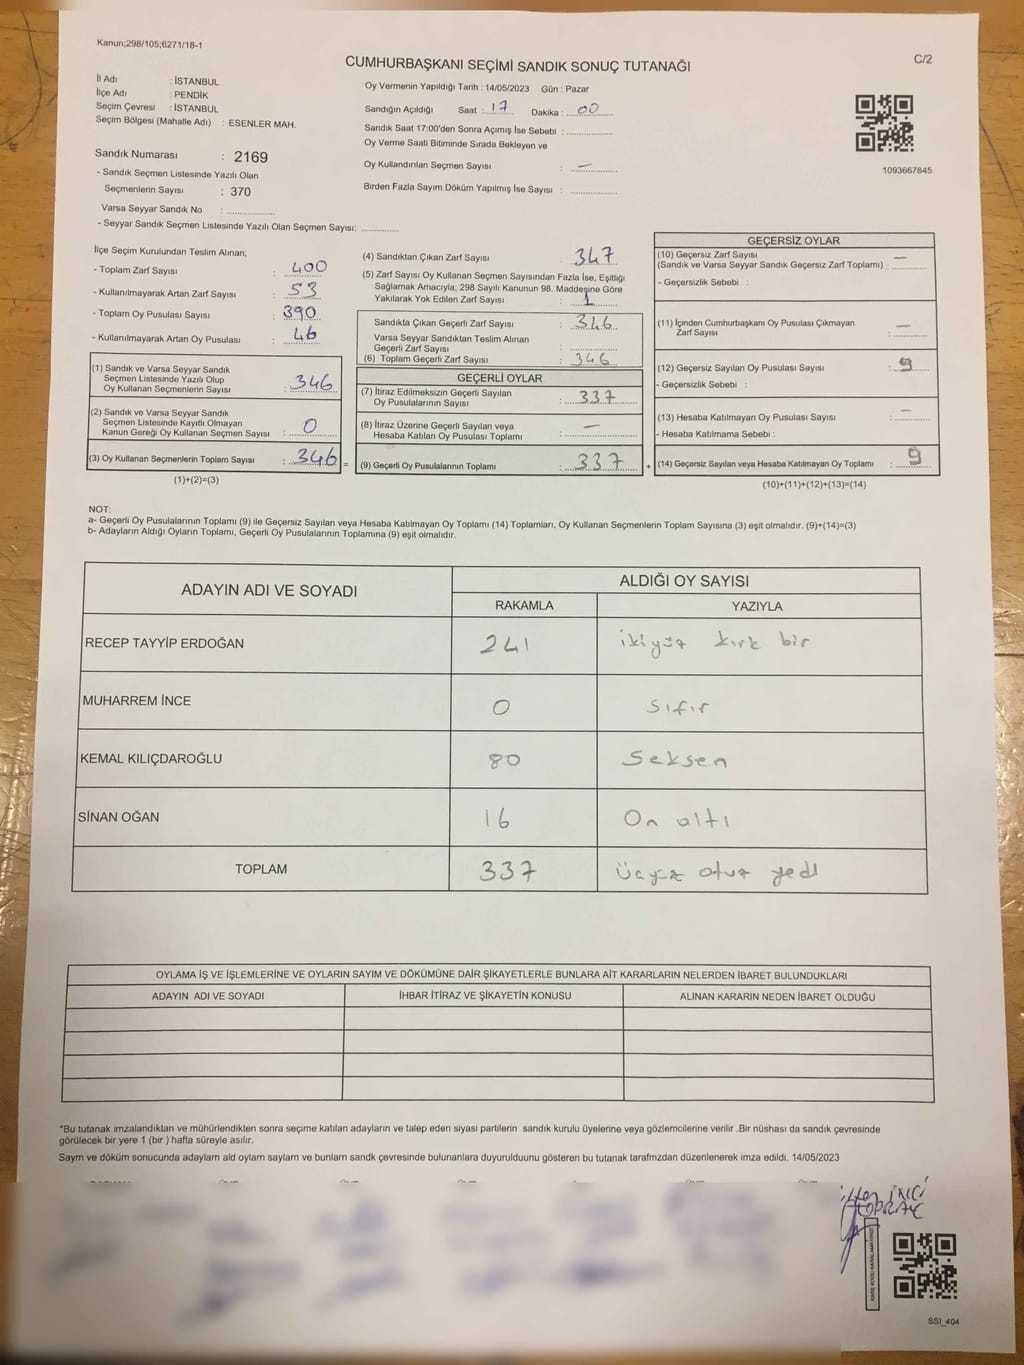 Kanun;298/105;6271/18-1
C/2
CUMHURBAŞKANI SEÇİMİ SANDIK SONUÇ TUTANAĞI
İl Adı : İSTANBUL
İlçe Adı : PENDİK
Seçim Çevresi : İSTANBUL
Seçim Bölgesi (Mahalle Adı) : ESENLER MAH.
Sandık Numarası : 2169
- Sandık Seçmen Listesinde Yazılı Olan
Seçmenlerin Sayısı : 370
Varsa Seyyar Sandık No :
- Seyyar Sandık Seçmen Listesinde Yazılı Olan Seçmen Sayısı:
Oy Vermenin Yapıldığı Tarih : 14/05/2023 Gün : Pazar
Sandığın Açıldığı Saat : 17 Dakika : 00
Sandık Saat 17:00'den Sonra Açımış İse Sebebi :
Oy Verme Saati Bitiminde Sırada Bekleyen ve
Oy Kullandırılan Seçmen Sayısı : —
Birden Fazla Sayım Döküm Yapılmış İse Sayısı :
1093667845
İlçe Seçim Kurulundan Teslim Alınan;
- Toplam Zarf Sayısı : 400
- Kullanılmayarak Artan Zarf Sayısı : 53
- Toplam Oy Pusulası Sayısı : 390
- Kullanılmayarak Artan Oy Pusulası : 46
(1) Sandık ve Varsa Seyyar Sandık
Seçmen Listesinde Yazılı Olup
Oy Kullanan Seçmenlerin Sayısı : 346
(2) Sandık ve Varsa Seyyar Sandık
Seçmen Listesinde Kayıtlı Olmayan
Kanun Gereği Oy Kullanan Seçmen Sayısı : 0
(3) Oy Kullanan Seçmenlerin Toplam Sayısı : 346 =
(1)+(2)=(3)
(4) Sandıktan Çıkan Zarf Sayısı : 347
(5) Zarf Sayısı Oy Kullanan Seçmen Sayısından Fazla İse, Eşitliği
Sağlamak Amacıyla; 298 Sayılı Kanunun 98. Maddesine Göre
Yakılarak Yok Edilen Zarf Sayısı : 1
Sandıkta Çıkan Geçerli Zarf Sayısı : 346
Varsa Seyyar Sandıktan Teslim Alınan
Geçerli Zarf Sayısı :
(6) Toplam Geçerli Zarf Sayısı : 346
GEÇERLİ OYLAR
(7) İtiraz Edilmeksizin Geçerli Sayılan
Oy Pusulalarının Sayısı : 337
(8) İtiraz Üzerine Geçerli Sayılan veya
Hesaba Katılan Oy Pusulası Toplamı : —
(9) Geçerli Oy Pusulalarının Toplamı : 337 +
GEÇERSİZ OYLAR
(10) Geçersiz Zarf Sayısı
(Sandık ve Varsa Seyyar Sandık Geçersiz Zarf Toplamı) : —
- Geçersizlik Sebebi :
(11) İçinden Cumhurbaşkanı Oy Pusulası Çıkmayan
Zarf Sayısı : —
(12) Geçersiz Sayılan Oy Pusulası Sayısı : 9
- Geçersizlik Sebebi :
(13) Hesaba Katılmayan Oy Pusulası Sayısı : —
- Hesaba Katılmama Sebebi :
(14) Geçersiz Sayılan veya Hesaba Katılmayan Oy Toplamı : 9
(10)+(11)+(12)+(13)=(14)
NOT:
a- Geçerli Oy Pusulalarının Toplamı (9) ile Geçersiz Sayılan veya Hesaba Katılmayan Oy Toplamı (14) Toplamları, Oy Kullanan Seçmenlerin Toplam Sayısına (3) eşit olmalıdır. (9)+(14)=(3)
b- Adayların Aldığı Oyların Toplamı, Geçerli Oy Pusulalarının Toplamına (9) eşit olmalıdır.
ADAYIN ADI VE SOYADI ALDIĞI OY SAYISI
RAKAMLA YAZIYLA
RECEP TAYYİP ERDOĞAN 241 ikiyüz kırk bir
MUHARREM İNCE 0 sıfır
KEMAL KILIÇDAROĞLU 80 Seksen
SİNAN OĞAN 16 On altı
TOPLAM 337 üçyüz otuz yedi
OYLAMA İŞ VE İŞLEMLERİNE VE OYLARIN SAYIM VE DÖKÜMÜNE DAİR ŞİKAYETLERLE BUNLARA AİT KARARLARIN NELERDEN İBARET BULUNDUKLARI
ADAYIN ADI VE SOYADI İHBAR İTİRAZ VE ŞİKAYETİN KONUSU ALINAN KARARIN NEDEN İBARET OLDUĞU
*Bu tutanak imzalandıktan ve mühürlendikten sonra seçime katılan adayların ve talep eden siyasi partilerin sandık kurulu üyelerine veya gözlemcilerine verilir .Bir nüshası da sandık çevresinde
görülecek bir yere 1 (bir ) hafta süreyle asılır.
Saym ve döküm sonucunda adaylarn ald oylarn saylarn ve bunlarn sandk çevresinde bulunanlara duyurulduunu gösteren bu tutanak tarafmzdan düzenlenerek imza edildi. 14/05/2023
SSI_404